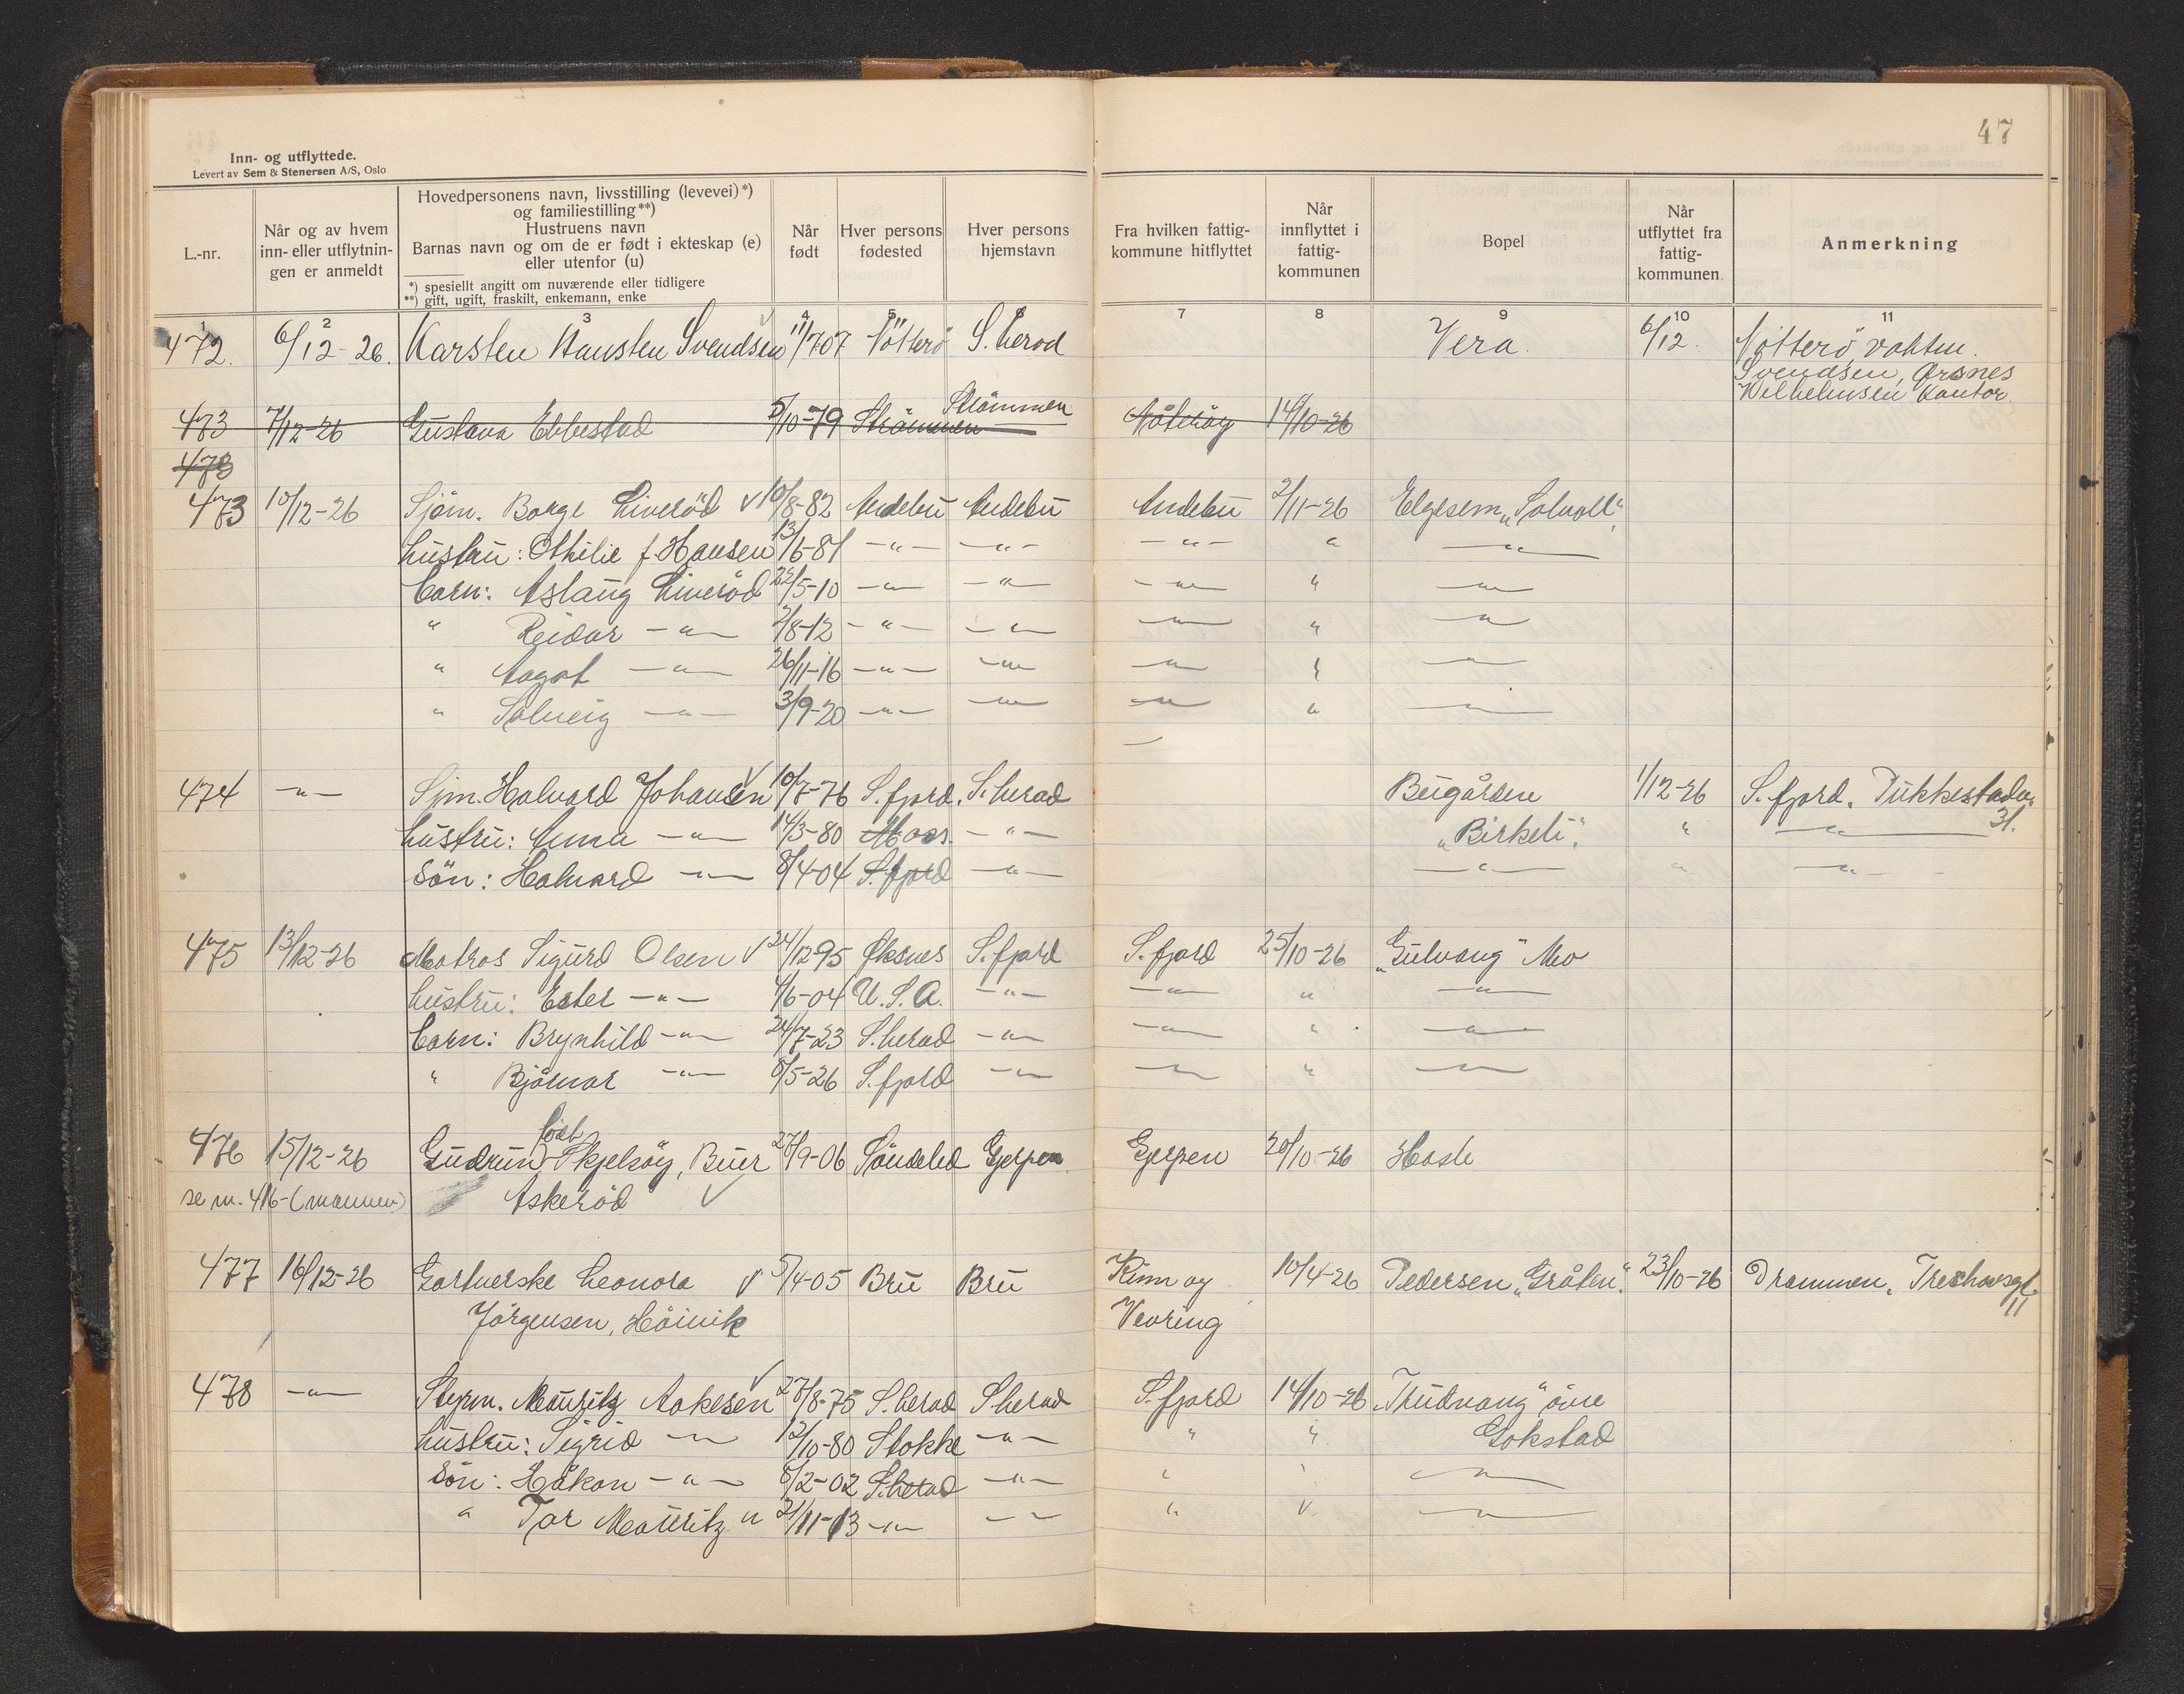 47
Inn- og utflyttede.
Levert av Sem & Stenersen A/S, Oslo
L.-nr.
Når og av hvem inn- eller utflytnin-gen er anmeldt
Hovedpersonens navn, livsstilling (levevei)*) og familiestilling**)
Hustruens navn
Barnas navn og om de er født i ekteskap (e) eller utenfor (u)
*) spesiellt angitt om nuværende eller tidligere
**) gift, ugift, fraskilt, enkemann, enke
Når født
Hver persons fødested
Hver persons hjemstavn
Fra hvilken fattig-kommune hitflyttet
Når innflyttet i fattig-kommunen
Bopel
Når utflyttet fra fattig-kommunen
Anmerkning
1 2 3 4 5 6 7 8 9 10 11
472. 6/12-26. Karsten Hansten Svendsen 11/707 Nötterö S. herad Vera. 6/12. Nötterö, vakten.
Svendsen, Ørsnes
Wilhelmsen Kontor.
Strömmen
473 7/12-26 Gustava Ebbestad 5/10-79 Strömmen Nöteröy 14/10-26
473
473 10/12-26 Sjöm. Borge Liveröd √ 10/8-82 Andebu Andebu Andebu 2/11-26 Elgesem "Solvoll"
hustru: Othilie f. Hansen 13/6-81 -"- -"- -"- " -"-
barn: Aslaug Liveröd 22/5-10 -"- -"- -"- " -"-
" Reidar -"- 2/8-12 -"- -"- -"- " -"-
" Aagot -"- 26/11-16 -"- -"- -"- " -"-
" Solveig -"- 3/9-20 -"- -"- -"- " -"-
474 -"- Sjm. Halvard Johansen √ 10/7-76 S. fjord. S. herad Bugården 1/12-26 S. fjord. Pukkestadv. 31.
hustru: Anna -"- 14/3-80 Moss. -"- "Birkeli". " -"-
Sön: Halvard -"- 8/4-04 S. fjord -"- -"- " -"-
475 13/12-26 Matros Sigurd Olsen √ 24/12-95 Øksnes S. fjord S. fjord 25/10-26 "Gulvang" Mo
hustru: Ester -"- 4/6-04 U.S.A. -"- -"- " -"-
barn: Brynhild -"- 24/7-23 S. herad -"- -"- " -"-
" Björnar -"- 8/5-26 S. fjord -"- -"- " -"-
född
476 15/12-26 Gudrun Skjelsöy, Buer 27/9-06 Söndeled Gjerpen Gjerpen 20/10-26 Hasle
se nr. 416-(mannen) Askeröd √
477 16/12-26 Gartnerske Leonora √ 5/4-05 Bru Bru Kinn og 10/4-26 Pedersen "Gråtun". 23/10-26 Drammen, Treschowsgt. 11
Jörgensen, Höivik Vevring
478 -"- Styrm. Mauritz Aakesen √ 27/8-75 S. herad S. herad S. fjord 14/10-26 "Trudvang" övre
hustru: Sigrid -"- 12/10-80 Stokke -"- " " Gokstad
Sön: Håkon -"- 8/2-02 S. herad -"- " " -"-
" Tor Mauritz " 21/11-13 -"- -"- " " -"-